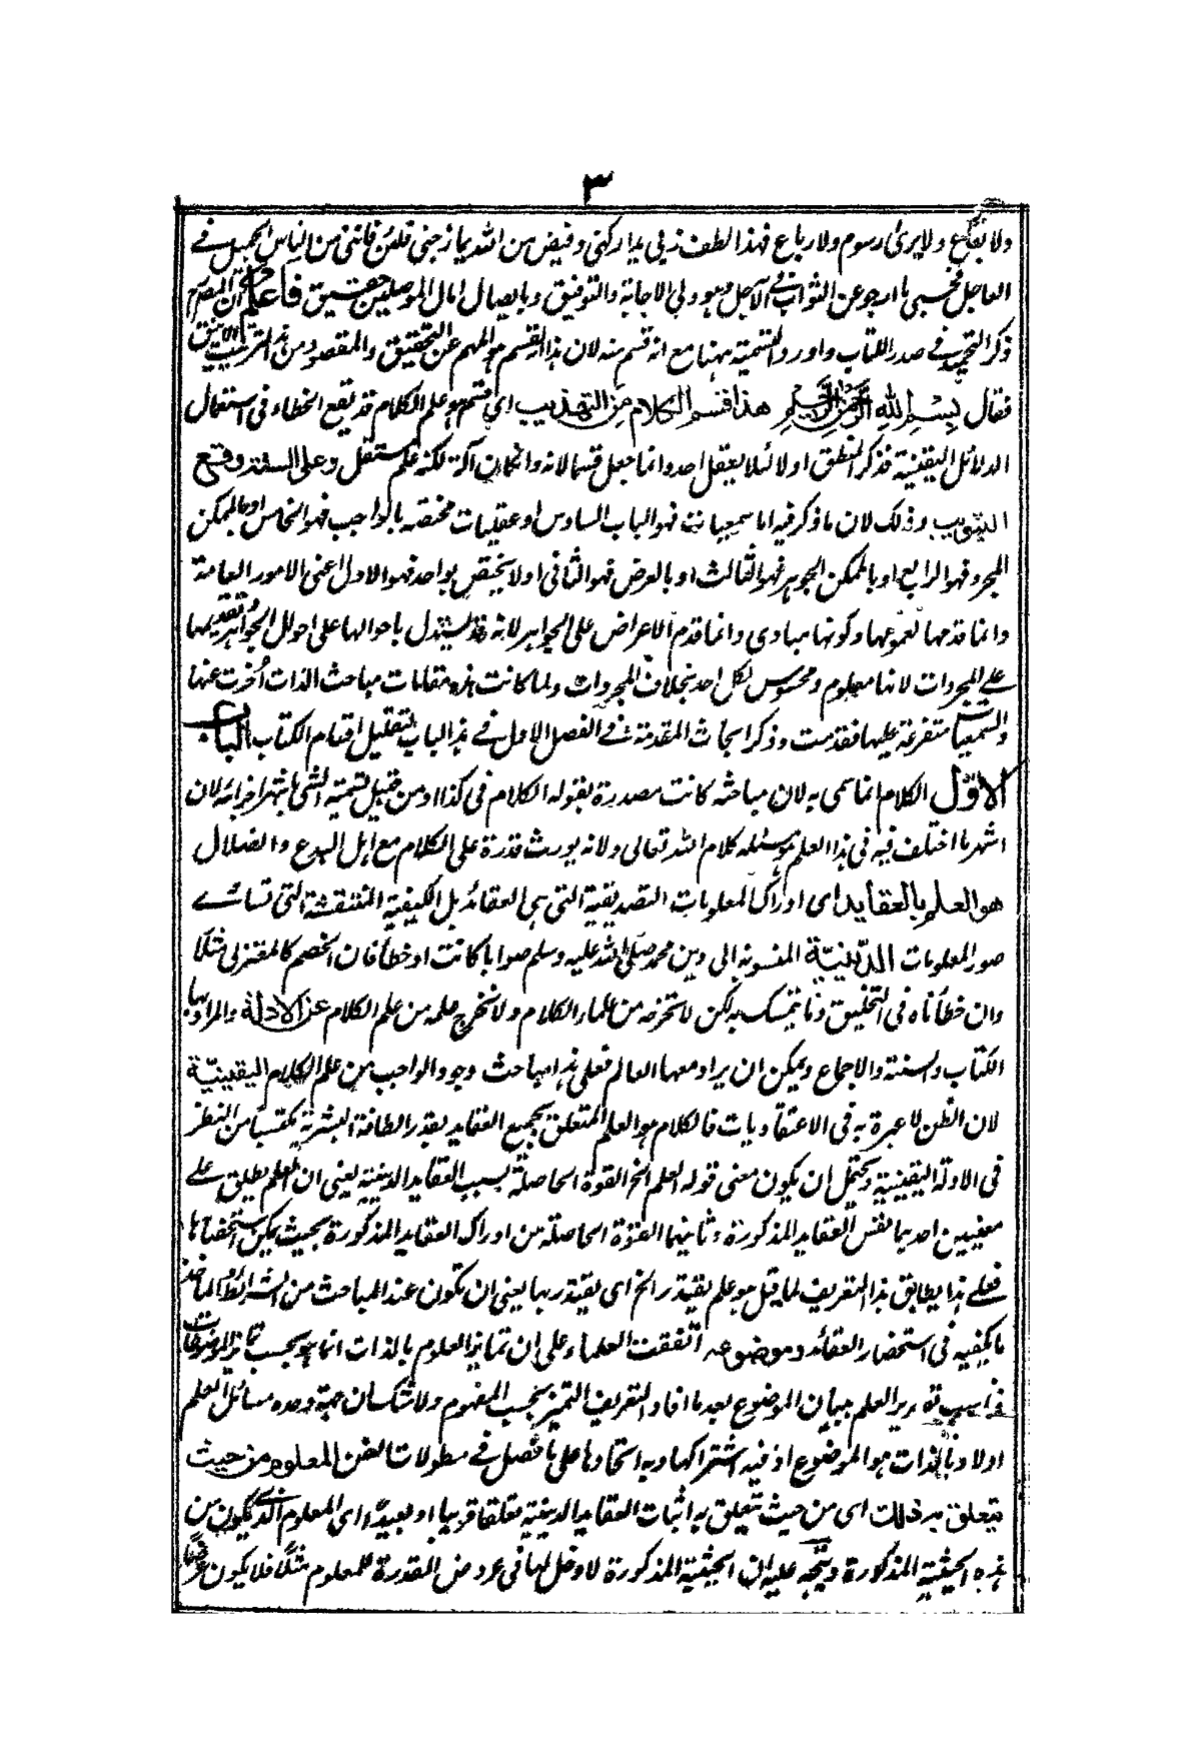 ٣
ولا بقاع ولا يرى رسوم ولا رباع فهذا لطف ربي يداركني وفيض من الله يمازجني فلئن فاتني من الناس الجميل في
العاجل فحسبي ما ارجو عن الثواب في الآجل وهو ولي الاجابة والتوفيق وبايصال امال المؤملين حقيق فاعلم ان المصرح
ذكر التحميد في صدر الكتاب واورد التسمية ههنا مع انه قسم منه لان هذا القسم هو المهم عن التحقيق والمقصود من هذا الترتيب الانيق
فقال بسم الله الرحمن الرحيم هذا قسم الكلام من التهذيب اي قسم هو علم الكلام قد يقع الخطاء في استعمال
الدلائل اليقينية فذكر المنطق اولا لئلا يعقل احد وانما جعل قسما لانه وان كان آلة لكنه علم مستقل وعلى الستة وقع
التبويب وذلك لان ما ذكر فيه اما سمعيات فهو الباب السادس او عقليات مختصه بالواجب فهو الخامس او بالممكن
المجرد فهو الرابع او بالممكن الجوهر فهو الثالث او بالعرض فهو الثاني او لا يختص بواحد فهو الاول اعني الامور العامة
وانما قدمها لعمومها وكونها مبادي وانما قدم الاعراض على الجواهر لانه قد يستدل باحوالها على احوال الجواهر تقديمها
على المجردات لانها معلوم ومحسوس لكل احد بخلاف المجردات ولما كانت هذه مقامات مباحث الذات اخرت عنها
والسمعيات متفرعة عليها فقدمت وذكر ابحاث المقدمة في الفصل الاول في هذا الباب لتقليل اقسام الكتاب الباب
الاول الكلام انما سمى به لان مباحثه كانت مصدرة بقوله الكلام في كذا او من قبيل تسمية الشي باشهر اجزائه لان
اشهر ما اختلف فيه في هذا العلم هو مسئله كلام الله تعالى ولانه يورث قدرة على الكلام مع اهل البدع والضلال
هو العلم بالعقايد اى ادراك المعلومات التصديقية التي هي العقائد بل الكيفية المنتقشة التي تسائے
صور المعلومات الدينية المنسوبه الى دين محمد صلى الله عليه وسلم صوابا كانت او خطأ فان الخصم كالمعتزلى مثلا
وان خطأناه في التخليق وما يتمسك به لكن لا تخرجه من علماء الكلام ولا نخرج علمه من علم الكلام عن الادلة والمراد بها
الكتاب والسنة والاجماع ويمكن ان يراد معها العالم فعلى هذا مباحث وجود الواجب من علم الكلام اليقينية
لان الظن لا عبرة به في الاعتقاديات فالكلام هو العلم المتعلق بجميع العقايد بقدر الطاقة البشرية مكتسبا من النظر
في الادلة اليقينية ويحتمل ان يكون معنى قوله العلم الخ القوة الحاصلة بسبب العقايد الدينية يعني ان العلم يطلق على
معنيين احديهما نفس العقايد المذكورة وثانيهما القوة الحاصلة من ادراك العقايد المذكورة بحيث يمكن استحضارها
فعلى هذا يطابق هذا التعريف لما قيل هو علم يقتدر الخ اى يقتدر بها يعني ان تكون عند المباحث من الشرائط والماخذ
ما يكفيه في استحضار العقائد وموضوعه اتفقت العلماء على ان تمايز العلوم بالذات انما هو بحسب تمايز الموضوعات
فناسب تصدير العلم ببيان الموضوع بعد ما افاد التعريف التميز بحسب المفهوم ولا شك ان جهة وحدة مسائل العلم
اولا وبالذات هو الموضوع اذ فيه اشتراكها وبه اتحادها على ما فصل في مطولات الفن المعلوم من حيث
يتعلق به ذلك اى من حيث يتعلق به اثبات العقايد الدينية تعلقا قريبا او بعيدا اى المعلوم الذى يكون من
هذه الحيثية المذكورة ويتجه عليه ان الحيثية المذكورة لا دخل لها في عروض القدرة للمعلوم مثلا فلا يكون عرضا